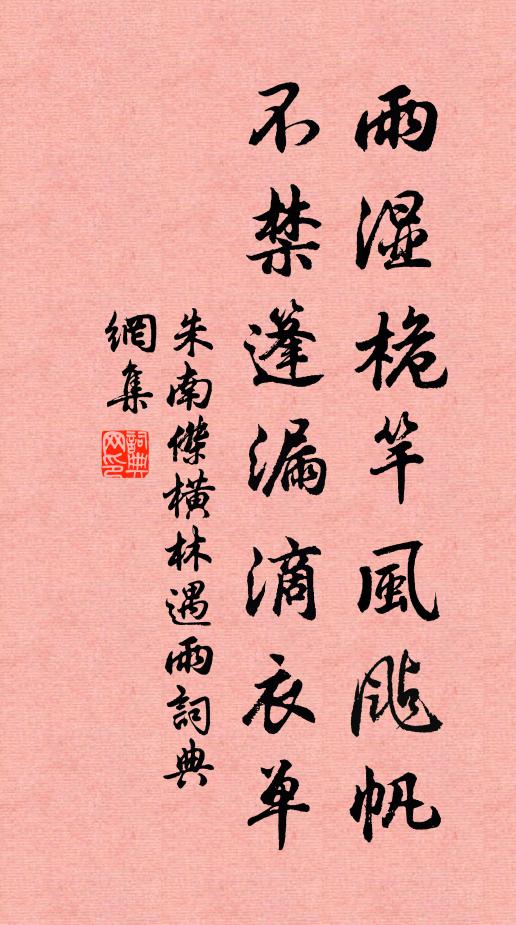 雨湿桅竿風颭帆
不禁篷漏滴衣单
朱南傑橫林遇雨詞典
網集
詞典網印